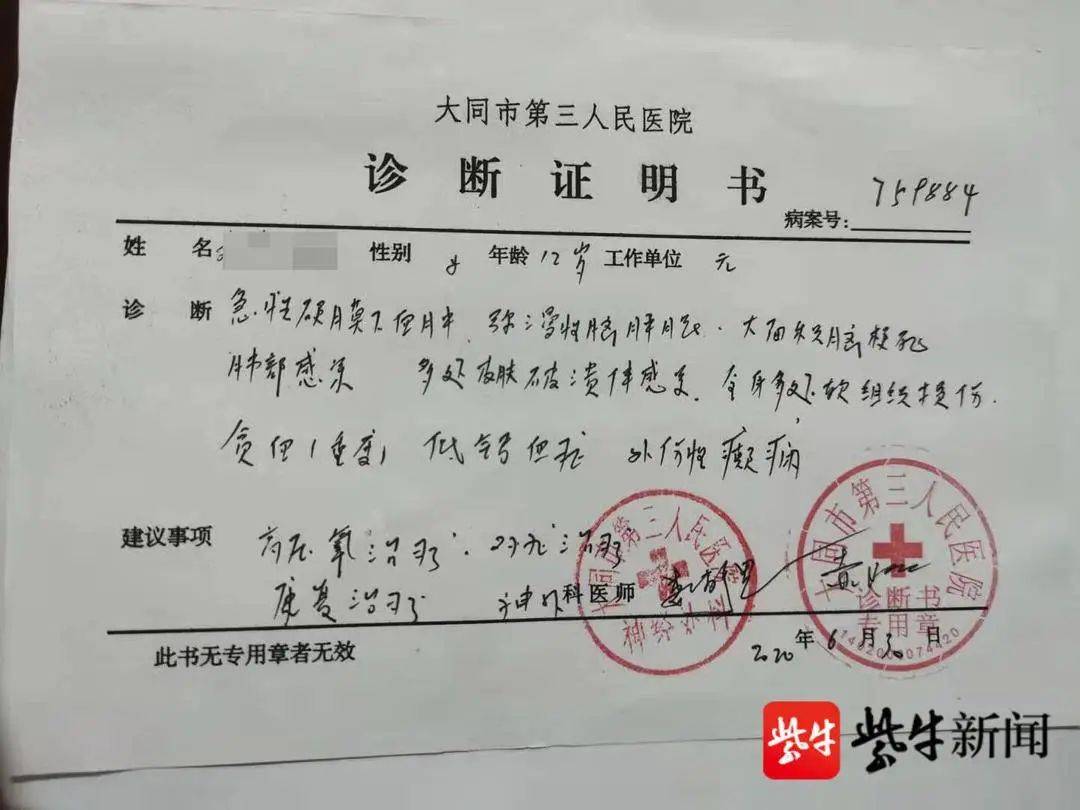 大同市第三人民医院
诊断证明书
病案号: 759884
姓 名 性别 女 年龄 12岁 工作单位 无
诊 断 急性硬膜下血肿、弥漫性脑肿胀、大面积脑梗死
肺部感染 多处皮肤破溃伴感染、全身多处软组织损伤、
贫血(重度) 低钙血症 外伤性癫痫
建议事项 高压氧治疗、对症治疗
康复治疗 神外科医师
大同市第三人民医院
神经外科
大同市第三人民医院
诊断书
专用章
1402000074420
2020年6月30日
此书无专用章者无效
紫牛 紫牛新闻